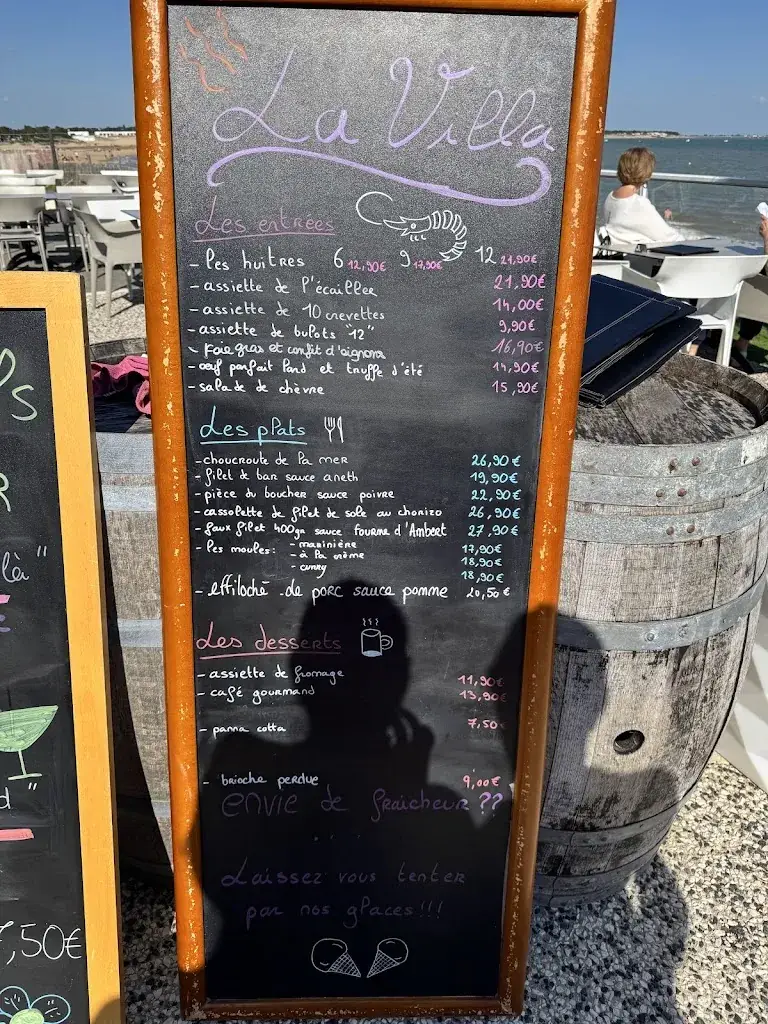 La Villa
Les entrées
- les huitres 6 12,90€ 9 17,90€ 12 21,90€
- assiette de l'écailler 21,90€
- assiette de 10 crevettes 14,00€
- assiette de bulots "12" 9,90€
- foie gras et confit d'oignons 16,90€
- œuf parfait lard et truffe d'été 14,90€
- salade de chèvre 15,90€
Les plats
- choucroute de la mer 26,90€
- filet de bar sauce aneth 19,90€
- pièce du boucher sauce poivre 22,90€
- cassolette de filet de sole au chorizo 26,90€
- faux filet 400gr sauce fourme d'Ambert 27,90€
- les moules: - marinière 17,90€
- à la crème 18,90€
- curry 18,90€
- effiloché de porc sauce pomme 20,50€
Les desserts
- assiette de fromage 11,90€
- café gourmand 13,90€
- panna cotta 7,50
- brioche perdue 9,00€
envie de fraîcheur ??
...
Laissez vous tenter
par nos glaces!!!
ls
R
là"
d"
7,50€